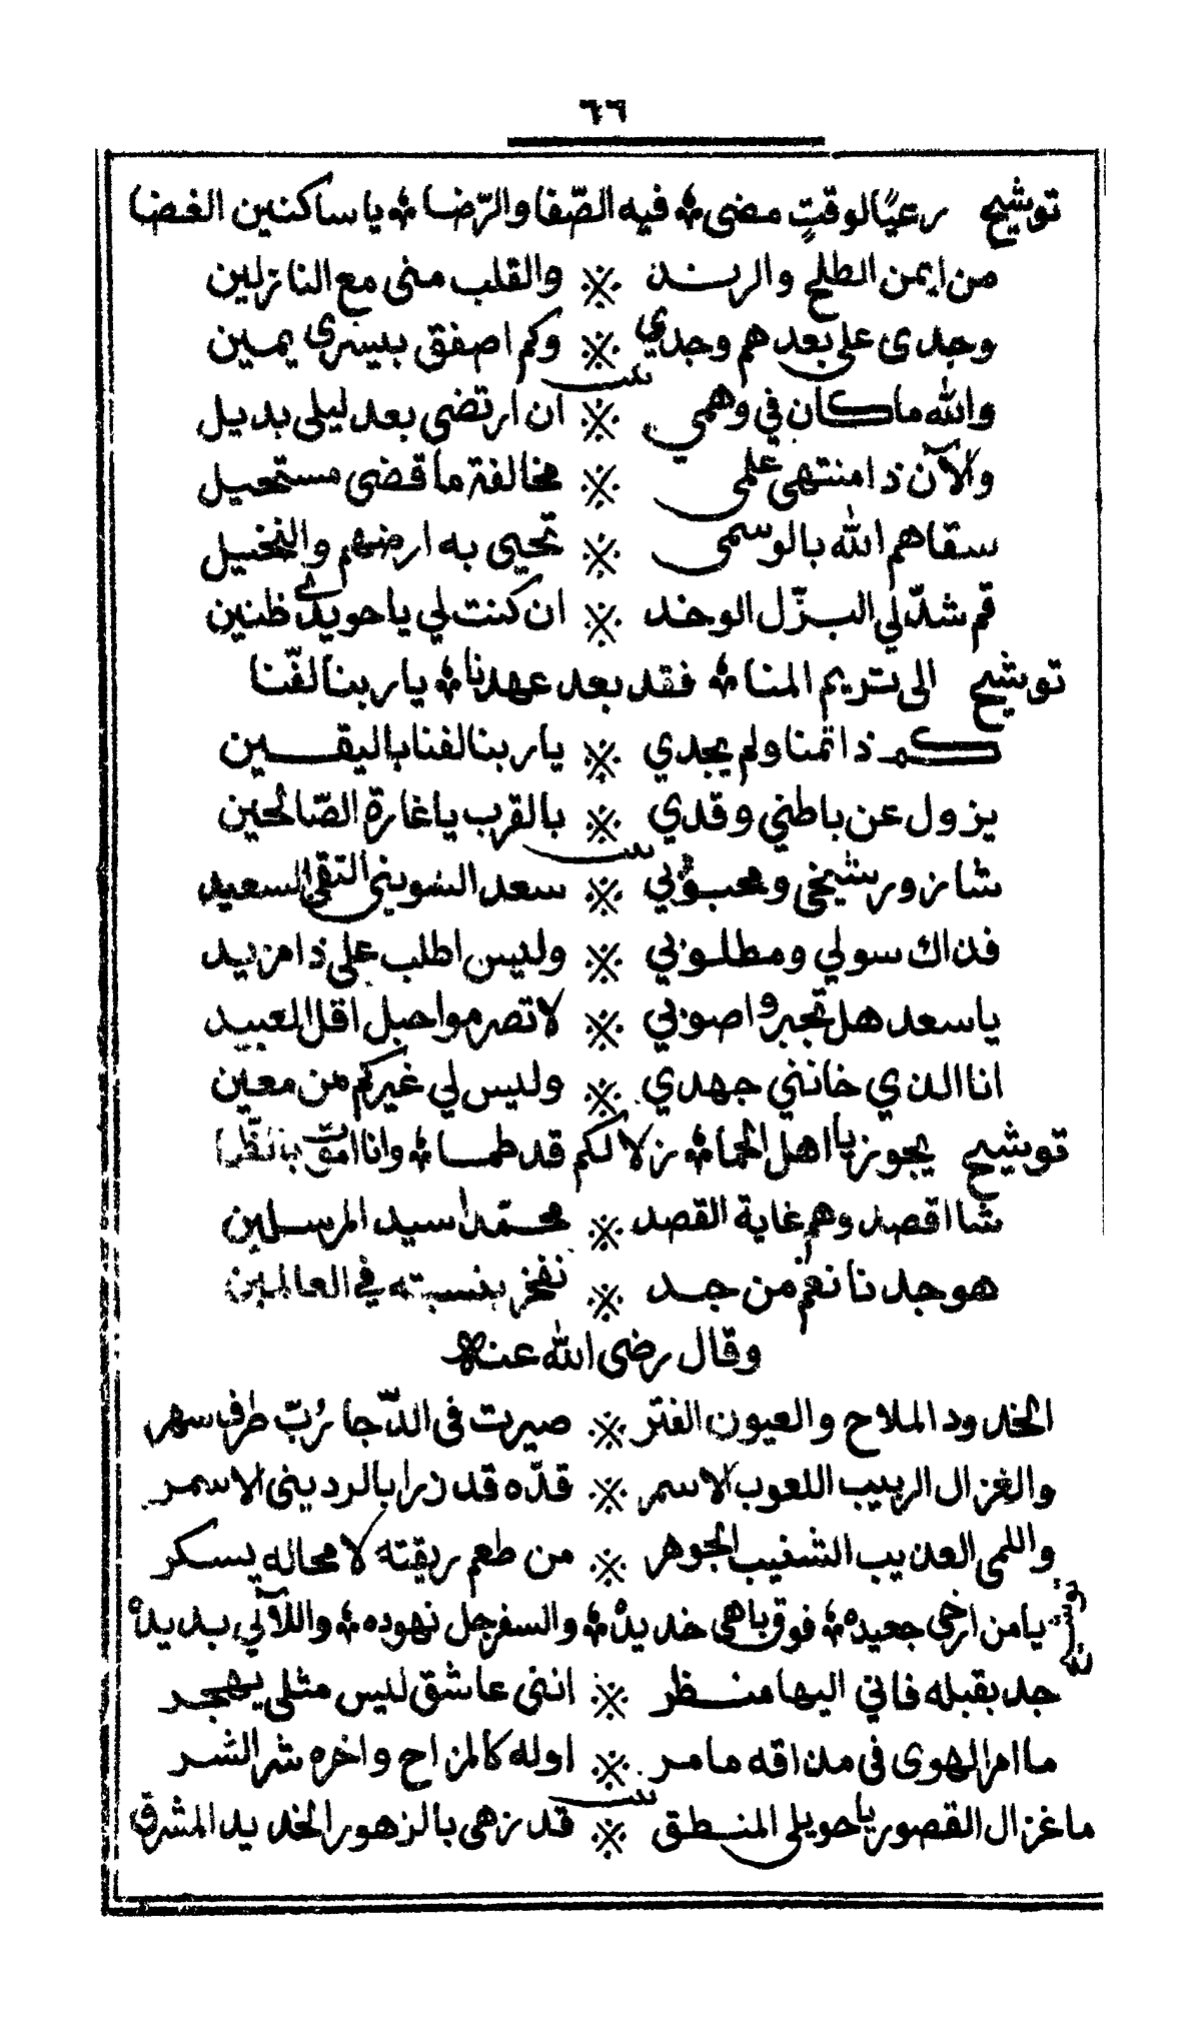 ٦٦
توشيح رعيًا لوقتٍ مضى ❈ فيه الصّفا والرّضا ❈ يا ساكنين الغضا
من ايمن الطلح والرند ※ والقلب منى مع النازلين
وجدى على بعدهم وجدي ※ وكم اصفق بيسرى يمين
بيت
والله ما كان في وهمي ※ ان ارتضى بعد ليلى بديل
والآن ذا منتهى علمي ※ مخالفة ما قضى مستحيل
سقاهم الله بالوسمى ※ تحيى به ارضهم والنخيل
قم شدّ لي البزّل الوخد ※ ان كنت لي يا حويدي ظنين
توشيح الى تريم المنا ❈ فقد بعد عهدنا ❈ يا ربنا لفّنا
كم ذا تمنا ولم يجدي ※ يا ربنا لفنا باليقين
يزول عن باطني وقدي ※ بالقرب يا غارة الصّالحين
بيت
شا زور شيخى ومحبوبي ※ سعد السوينى التقى السعيد
فذاك سولي ومطلوبي ※ وليس اطلب على ذا مزيد
يا سعد هل تجبروا صوبي ※ لا تصرموا حبل اقل العبيد
انا الذي خاننى جهدي ※ وليس لي غيركم من معين
توشيح يجوز يا اهل الحما ❈ نزلا لكم قد طما ❈ وانا امق بالظما
شا اقصد وهم غاية القصد ※ محمّد سيد المرسلين
هو جدنا نعم من جد ※ نفخر بنسبته في العالمين
وقال رضى الله عنه
الخدود الملاح والعيون الفتر ※ صيرت فى الدّجا رُبّ طرف سهر
والغزال الربيب اللعوب الاسمر ※ قدّه قد زرا بالردينى الاسمر
واللمى العذيب الشنيب الجوهر ※ من طعم ريقته لا محاله يسكر
توشيح يا من ارخى جعيده ❈ فوق باهى خديده ❈ والسفرجل نهوده ❈ واللآلي بديده
جد بقبله فاني اليها منظر ※ اننى عاشق ليس مثلى يهجر
ما امر الهوى فى مذاقه ما مر ※ اوله كالمزاح واخره شر الشر
بيت
ما غزال القصور يا حويلى المنطق ※ قد زهى بالزهور الخديد المشرق